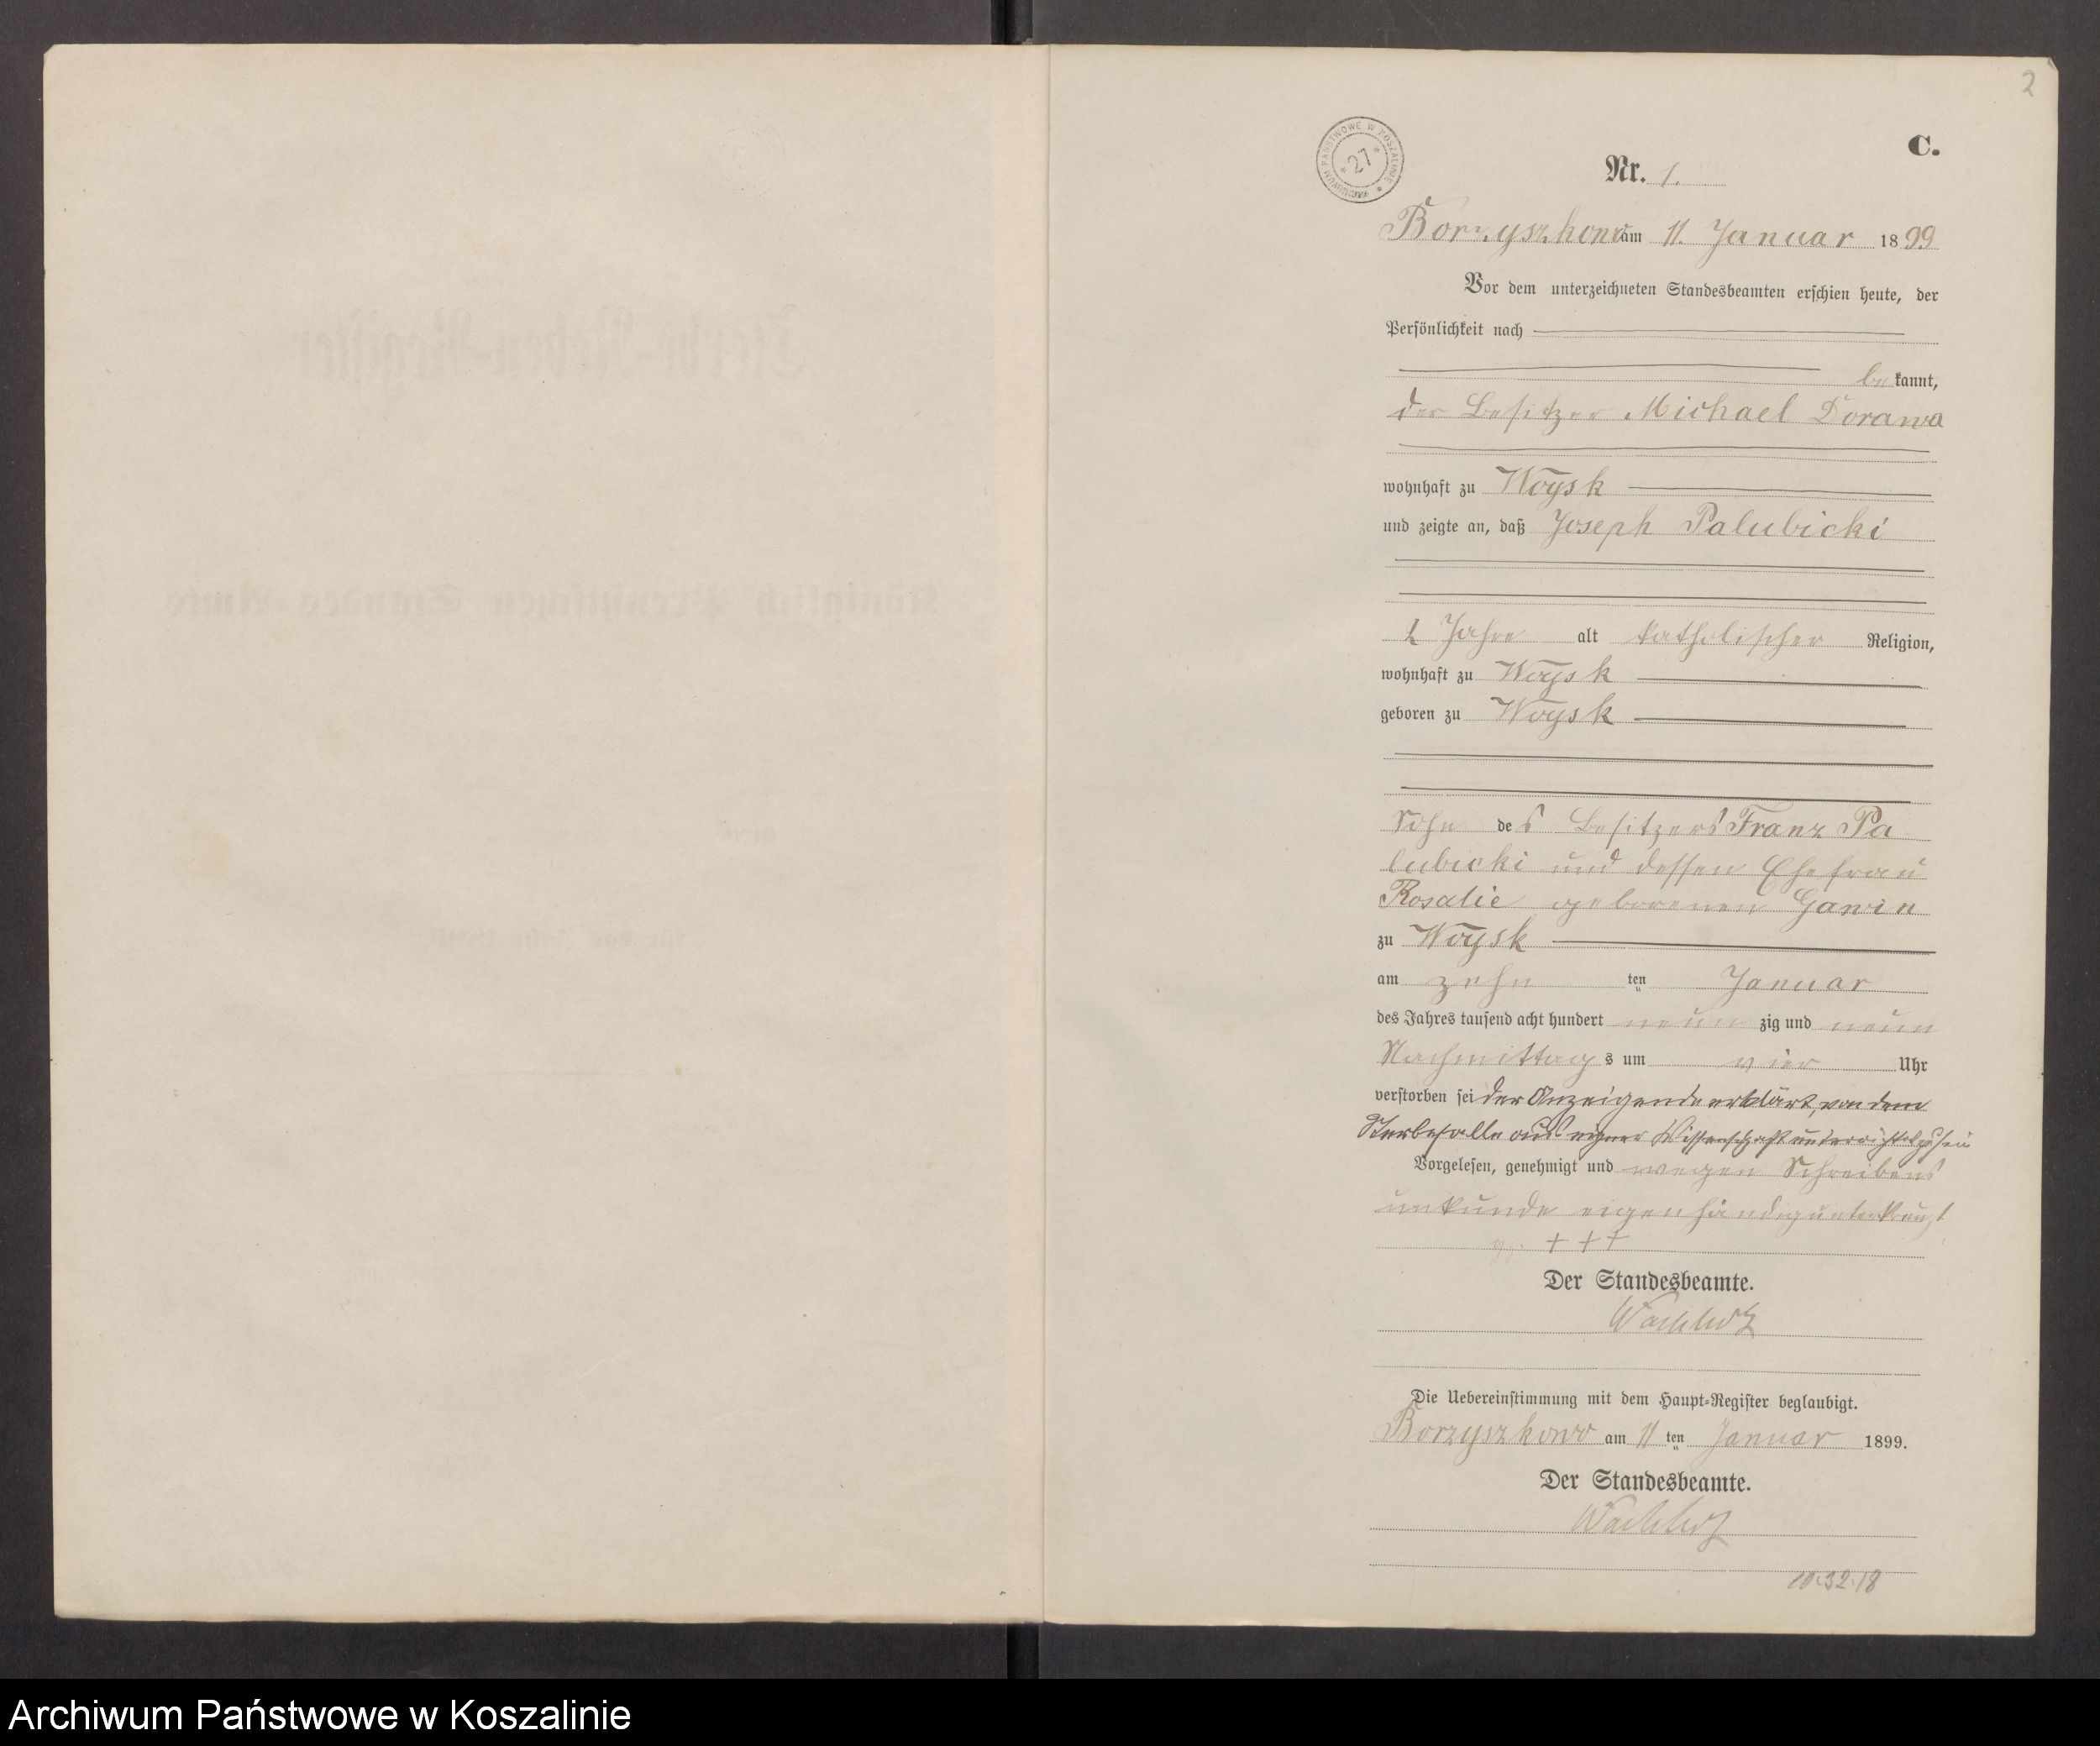 2
C.
ARCHIWUM PAŃSTWOWE W KOSZALINIE
* 27 *
Nr. 1.
Borzyszkowo am 11. Januar 1899
Vor dem unterzeichneten Standesbeamten erschien heute, der
Persönlichkeit nach
bekannt,
der Besitzer Michael Dorawa
wohnhaft zu Woysk
und zeigte an, daß Joseph Palubicki
Jahre alt katholischer Religion,
wohnhaft zu Woysk
geboren zu Woysk
Sohn des Besitzers Franz Pa
lubicki und dessen Ehefrau
Rosalie geborenen Gawin
zu Woysk
am zehn ten Januar
des Jahres tausend acht hundert neun zig und neun
Nachmittags um vier Uhr
verstorben sei der Anzeigende erklärt, von dem
Sterbefalle aus eigner Wissenschaft unterrichtet zu sein
Vorgelesen, genehmigt und wegen Schreibens
unkunde eigenhändig unterkreuzt
+ + +
Der Standesbeamte.
Die Uebereinstimmung mit dem Haupt-Register beglaubigt.
Borzyszkowo am 11 ten Januar 1899.
Der Standesbeamte.
10.32.18
Archiwum Państwowe w Koszalinie